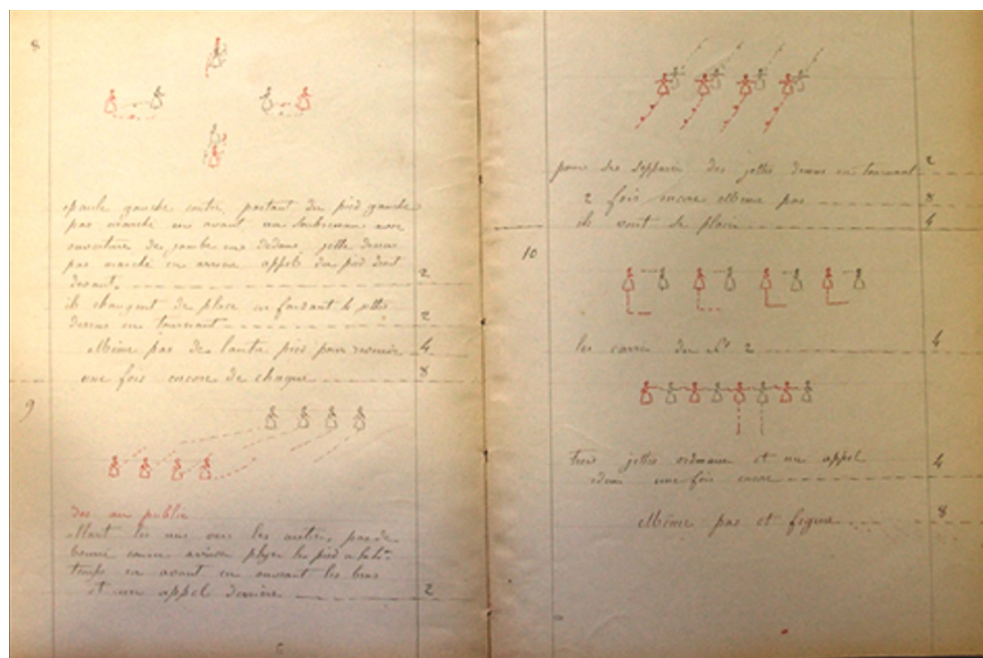 8
épaule gauche contre, partant du pied gauche
pas marché en avant un soubresaut avec
ouverture de jambe en dedans jetté dessus
pas marché en arrière appel du pied droit
devant. 2
ils changent de place en faisant le jetté
dessus en tournant 2
Même pas de l'autre pied pour revenir 4
une fois encore de chaque 8
9
Dos au public
Allant les uns vers les autres, pas de
bourré arrière plyer les pied
temps en avant en ouvrant les bras
et un appel derrière 2
pour se des jettés dessus en tournant 2
2 fois encore Même pas 8
ils vont se placer 4
10
les carré du N° 2 4
Trois jettés ordinaire et un appel
idem une fois encore 4
Même pas et figure 8